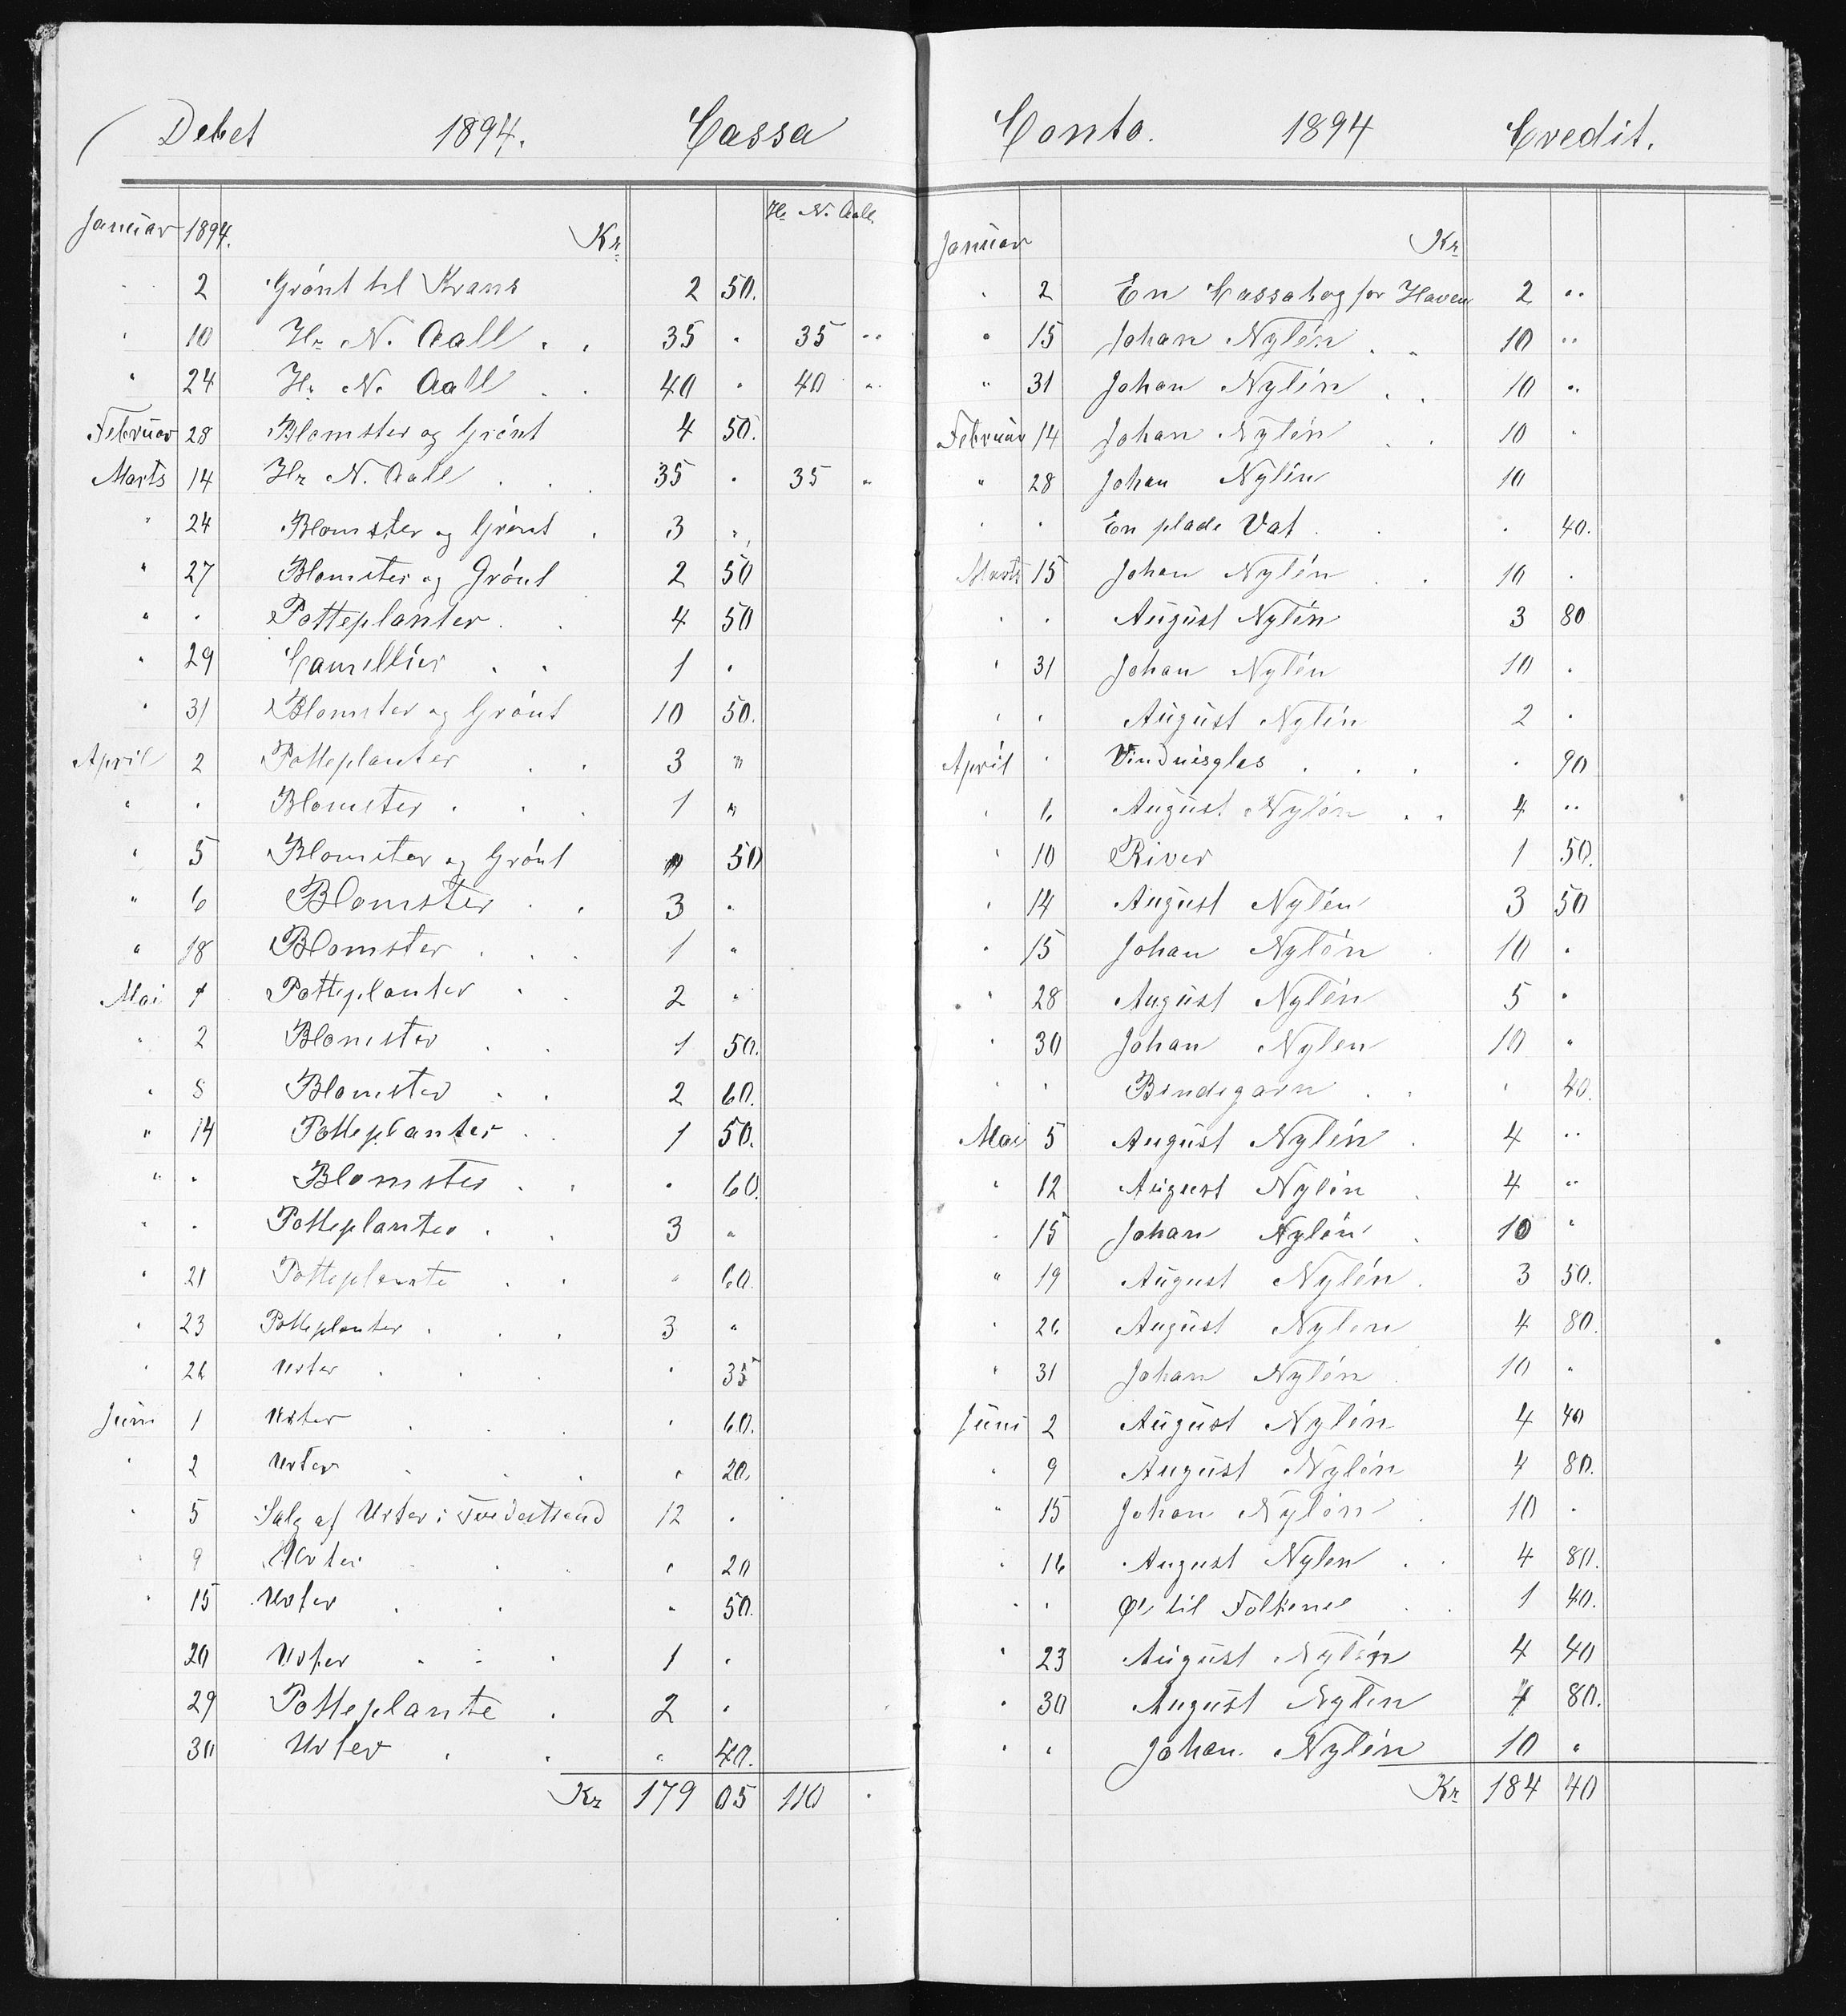 Debet 1894. Cassa
Januar 1894. Kr. Hr N. Aall.
" 2 Grönt til Krans 2 50.
" 10 Hr N. Aall . . 35 " 35 "
" 24 Hr N. Aall . . 40 " 40 "
Februar 28 Blomster og Grönt 4 50.
Marts 14 Hr N. Aall . . . 35 " 35 "
" 24 Blomster og Grönt . 3 "
" 27 Blomster og Grönt 2 50
" " Potteplanter . . 4 50
" 29 Camellier . . 1 "
" 31 Blomster og Grönt 10 50.
April 2 Potteplanter . . 3 "
" " Blomster . . . 1 "
" 5 Blomster og Grönt " 50
" 6 Blomster . . 3 "
" 18 Blomster . . . 1 "
Mai 1 Potteplanter . . 2 "
" 2 Blomster . . 1 50.
" 8 Blomster . . 2 60.
" 14 Potteplanter . . 1 50.
" " Blomster . . " 60.
" " Potteplanter . . 3 "
" 21 Potteplante . . " 60.
" 23 Potteplanter . . . 3 "
" 26 Urter . . . " 35
Juni 1 Urter . . . " 60.
" 2 Urter . . . " 20.
" 5 Salg af Urter i Tvedestrand 12 "
" 9 Urter . . . " 20
" 15 Urter . . " 50.
20 Urter . . . 1 "
29 Potteplante . 2 "
30 Urter . . " 40.
Kr 179 05 110 "
Conto. 1894 Credit.
Januar Kr
" 2 En Cassabog for Haven 2 "
" 15 Johan Nylén . . 10 "
" 31 Johan Nylén . . 10 "
Februar 14 Johan Nylén . . 10 "
" 28 Johan Nylén 10
" " En plade Vat . . " 40.
Marts 15 Johan Nylén . . 10 "
" " August Nylén 3 80
" 31 Johan Nylén 10 "
" " August Nylén 2 "
April " Vinduesglas . . . " 90
" 6 August Nylén . . 4 "
" 10 River 1 50.
" 14 August Nylén 3 50
" 15 Johan Nylén . 10 "
" 28 August Nylén 5 "
" 30 Johan Nylen 10 "
" " Bindegarn . . " 40.
Mai 5 August Nylén . 4 "
" 12 August Nylén . 4 "
" 15 Johan Nylén . 10 "
" 19 August Nylén . 3 50.
" 26 August Nylen 4 80.
" 31 Johan Nylén . 10 "
Juni 2 August Nylén 4 40
" 9 August Nylén 4 80.
" 15 Johan Nylén . 10 "
" 16 August Nylen . . 4 80.
" " Øl til Folkene . . 1 40.
" 23 August Nylén 4 40
" 30 August Nylen 4 80.
" " Johan Nylén 10 "
Kr 184 40